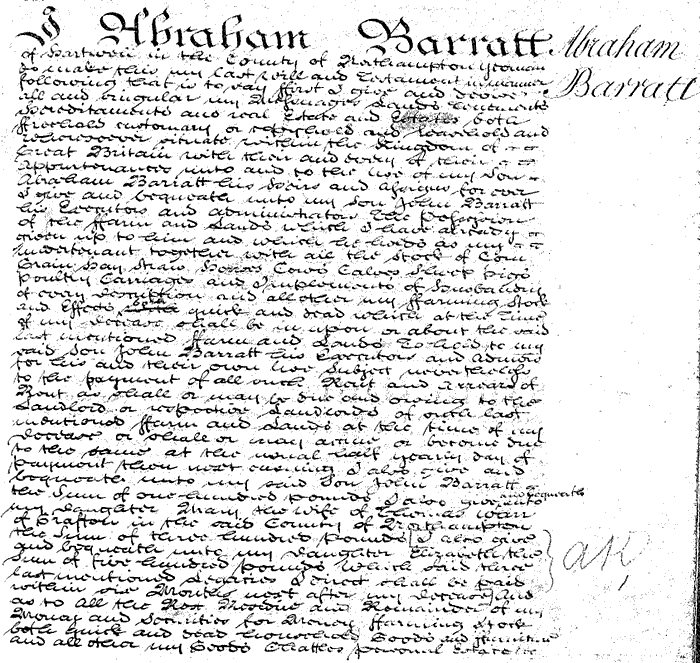 I Abraham Barratt
Abraham
Barratt
of Hartwell in the County of Northampton Yeoman
Do make this my last Will and Testament in manner
following that is to say First I give and devise
all and singular my Messuages Lands Tenements
Hereditaments and real Estate and Estates both
freehold customary or copyhold and leasehold and
wheresoever situate within the Kingdom of
Great Britain with their and every of their
Appurtenances unto and to the use of my Son
Abraham Barratt his Heirs and Assigns for ever
I give and bequeath unto my Son John Barratt
his Executors and administrators The Possession
of the Farm and Lands which I have already
given up to him and which he holds as my
undertenant together with all the Stock of Corn
Grain Hay Straw Horses Cows Calves Sheep Pigs
Poultry Carriages and Implements of Husbandry
of every description and all other my Farming Stock
and Effects both quick and dead which at the time
of my decease shall be in upon or about the said
last mentioned Farm and Lands To hold to my
said Son John Barratt his Executors and admors
for his and their own use Subject nevertheless
to the payment of all such Rent and arrears of
Rent as shall or may be due and owing to the
Landlord or respective Landlords of such last
mentioned Farm and Lands at the time of my
decease or shall or may accrue or become due
to the same at the usual half yearly day of
payment then next ensuing I also give and
bequeath unto my said Son John Barratt
the Sum of one hundred pounds I also give and bequeath unto
my daughter Mary the wife of Thomas Warr
of Grafton in the said County of Northampton
the Sum of three hundred pounds I also give
and bequeath unto my daughter Elizabeth the
Sum of five hundred pounds Which said three
last mentioned Legacies I direct shall be paid
within six Months next after my decease And
as to all the Rest Residue and Remainder of my
Money and Securities for Money Farming Stock
both quick and dead household Goods and furniture
and all other my Goods Chattels personal Estate